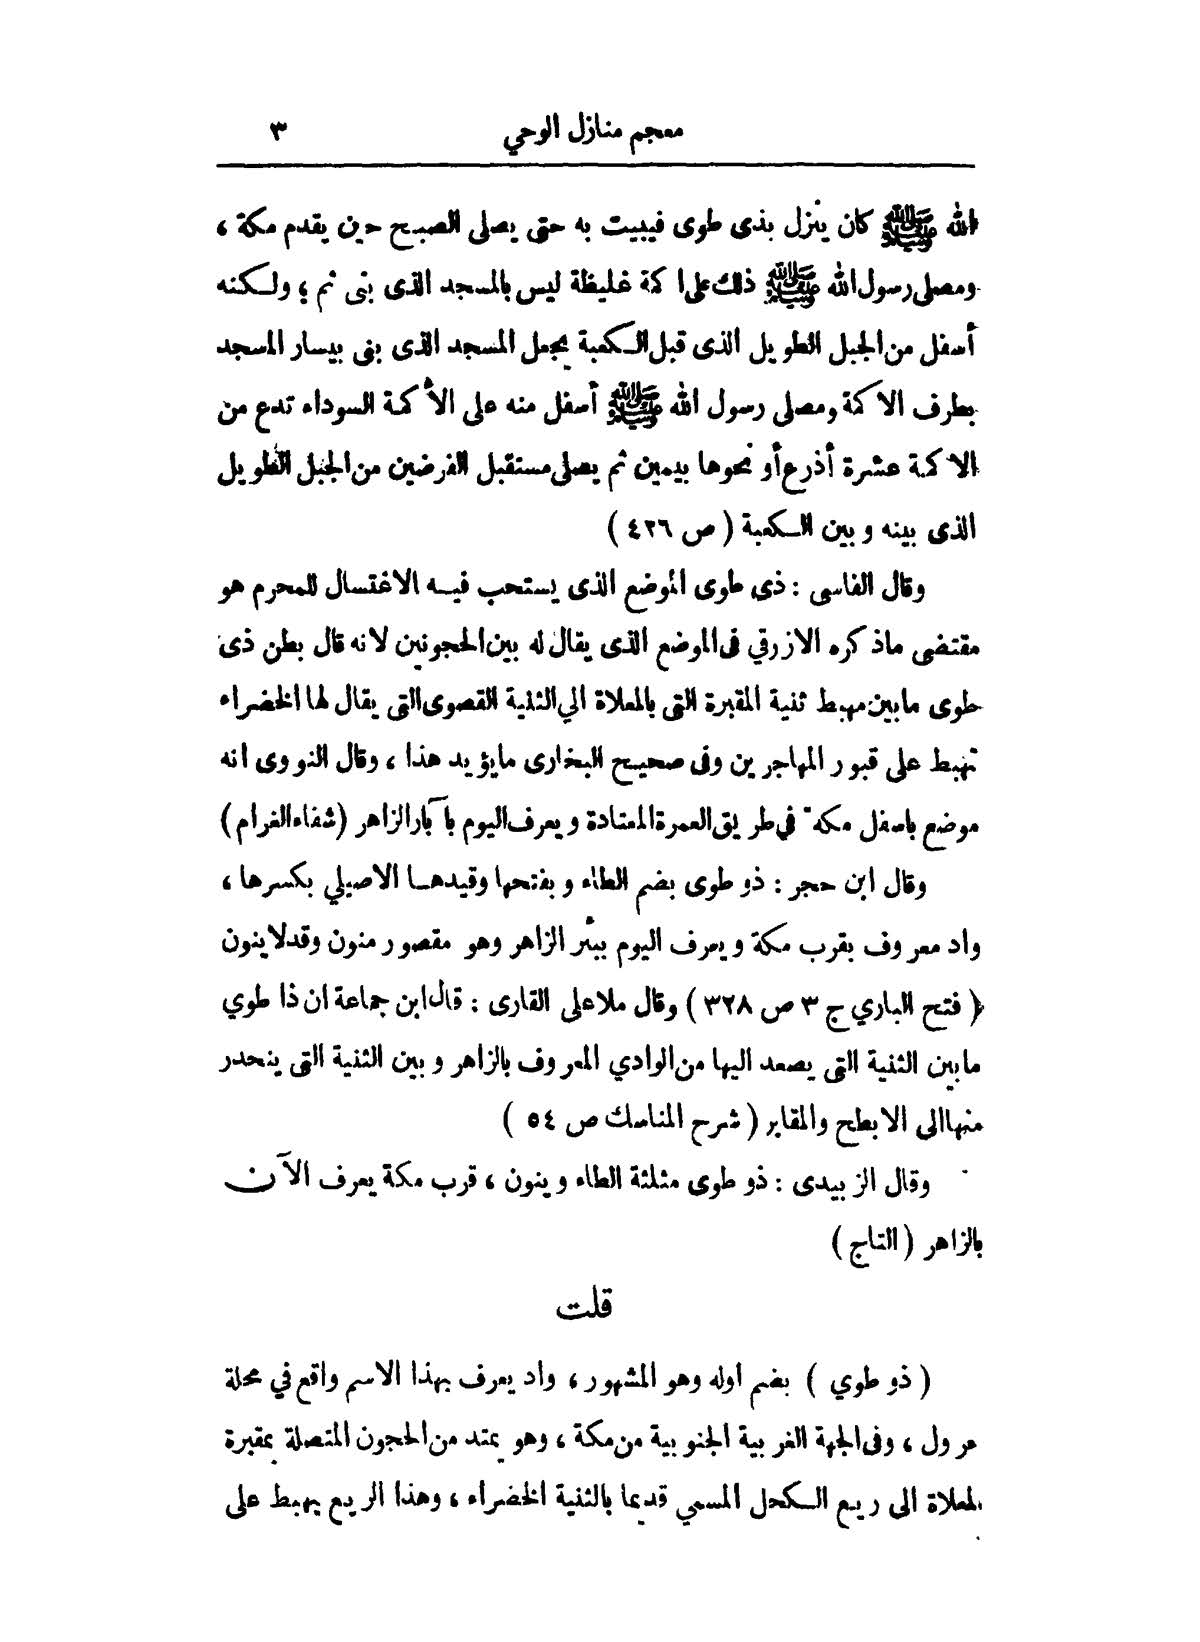 معجم منازل الوحي ٣
الله ﷺ كان ينزل بذى طوى فيبيت به حتى يصلى الصبح حين يقدم مكة ،
ومصلى رسول الله ﷺ ذلك على اكمة غليظة ليس بالمسجد الذى بنى ثم ؛ ولكنه
أسفل من الجبل الطويل الذى قبل الكعبة يجعل المسجد الذى بنى بيسار المسجد
بطرف الاكمة ومصلى رسول الله ﷺ أسفل منه على الأكمة السوداء تدع من
الاكمة عشرة أذرع أو نحوها بيمين ثم يصلى مستقبل الفرضين من الجبل الطويل
الذى بينه وبين الكعبة ( ص ٤٢٦ )
وقال الفاسى : ذى طوى الموضع الذى يستحب فيه الاغتسال للمحرم هو
مقتضى ماذكره الازرقي فى الموضع الذى يقال له بين الحجونين لانه قال بطن ذى
طوى مابين مهبط ثنية المقبرة التى بالمعلاة الي الثنية القصوى التى يقال لها الخضراء
تهبط على قبور المهاجرين وفى صحيح البخارى مايؤيد هذا ، وقال النووى انه
موضع باسفل مكة في طريق العمرة المعتادة ويعرف اليوم بآبار الزاهر (شفاء الغرام)
وقال ابن حجر : ذو طوى بضم الطاء وبفتحها وقيدها الاصيلي بكسرها ،
واد معروف بقرب مكة ويعرف اليوم ببئر الزاهر وهو مقصور منون وقد لاينون
( فتح الباري ج ٣ ص ٣٢٨ ) وقال ملا على القارى : قال ابن جماعة ان ذا طوي
مابين الثنية التى يصعد اليها من الوادي المعروف بالزاهر وبين الثنية التى ينحدر
منها الى الابطح والمقابر ( شرح المناسك ص ٥٤ )
وقال الزبيدى : ذو طوى مثلثة الطاء وينون ، قرب مكة يعرف الآن
بالزاهر ( التاج )
قلت
( ذو طوي ) بضم اوله وهو المشهور ، واد يعرف بهذا الاسم واقع في محلة
جرول ، وفى الجهة الغربية الجنوبية من مكة ، وهو يمتد من الحجون المتصلة بمقبرة
المعلاة الى ريع الكحل المسمي قديما بالثنية الخضراء ، وهذا الريع يهبط على